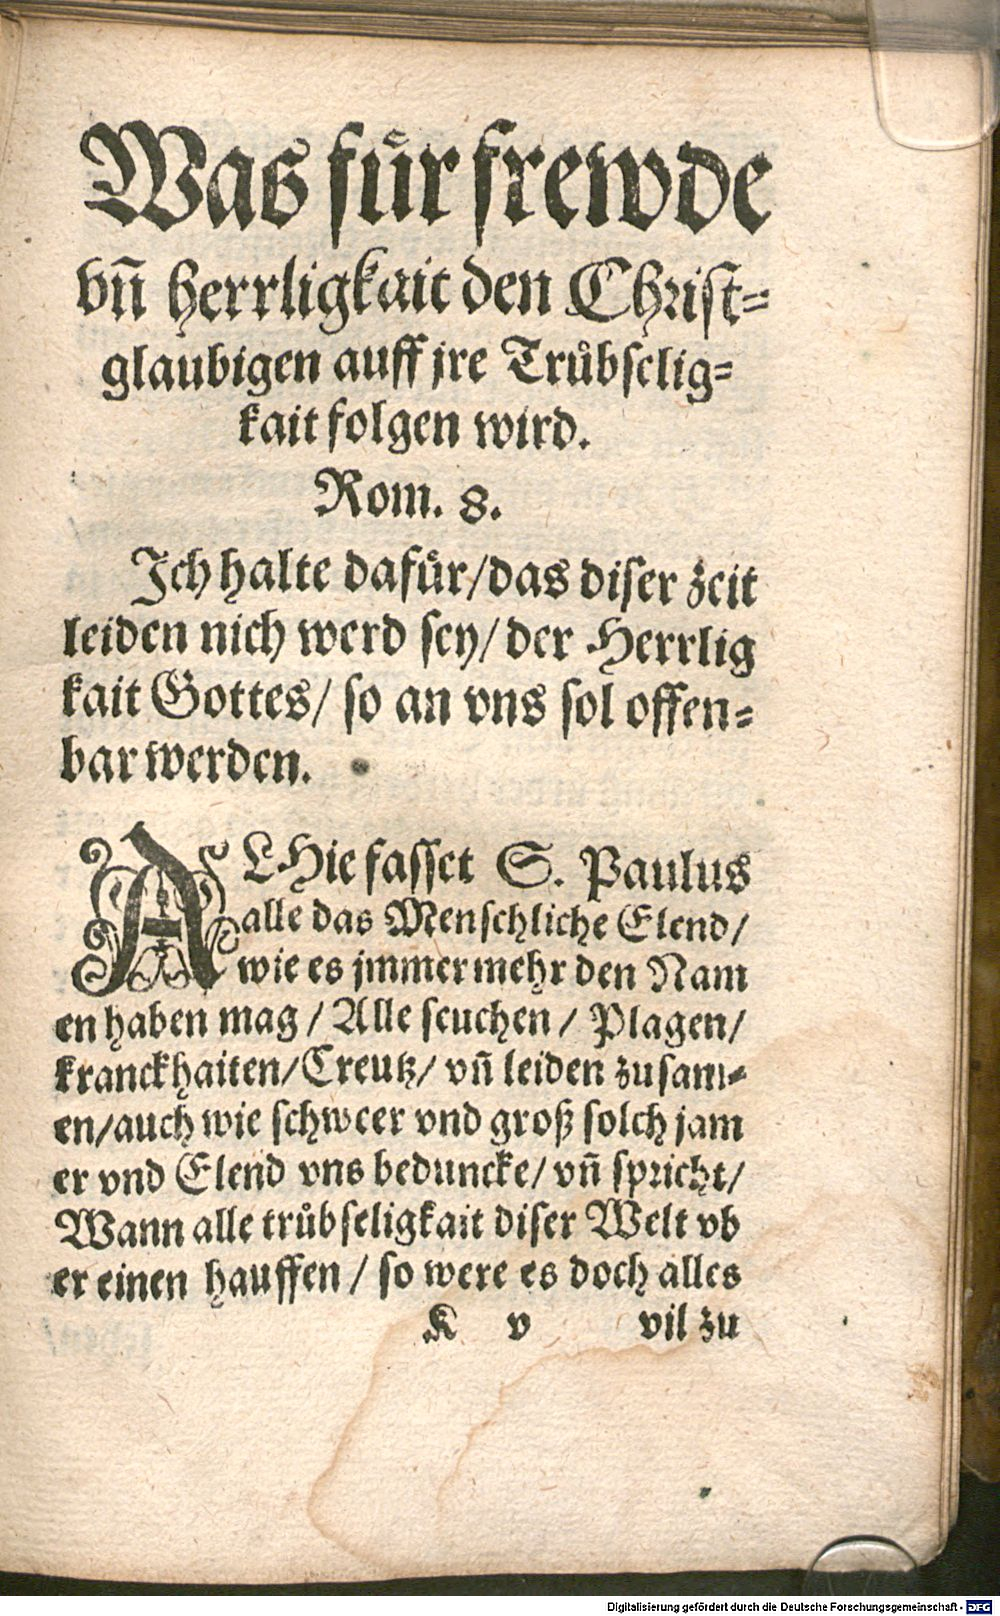 Was fuͤr frewde
vñ herrligkait den Christ=
glaubigen auff jre Truͤbselig=
kait folgen wird.
Rom. 8.
Ich halte dafuͤr/das diser zeit
leiden nich werd sey/ der Herrlig
kait Gottes/ so an vns sol offen=
bar werden.
ALHie fasset S. Paulus
alle das Menschliche Elend/
wie es jmmer mehr den Nam
en haben mag / Alle seuchen / Plagen/
kranckhaiten/Creutz/ vñ leiden zusam=
en/auch wie schweer vnd groß solch jam
er vnd Elend vns beduncke/ vñ spricht/
Wann alle truͤbseligkait diser Welt vb
er einen hauffen / so were es doch alles
K v vil zu
Digitalisierung gefördert durch die Deutsche Forschungsgemeinschaft - DFG